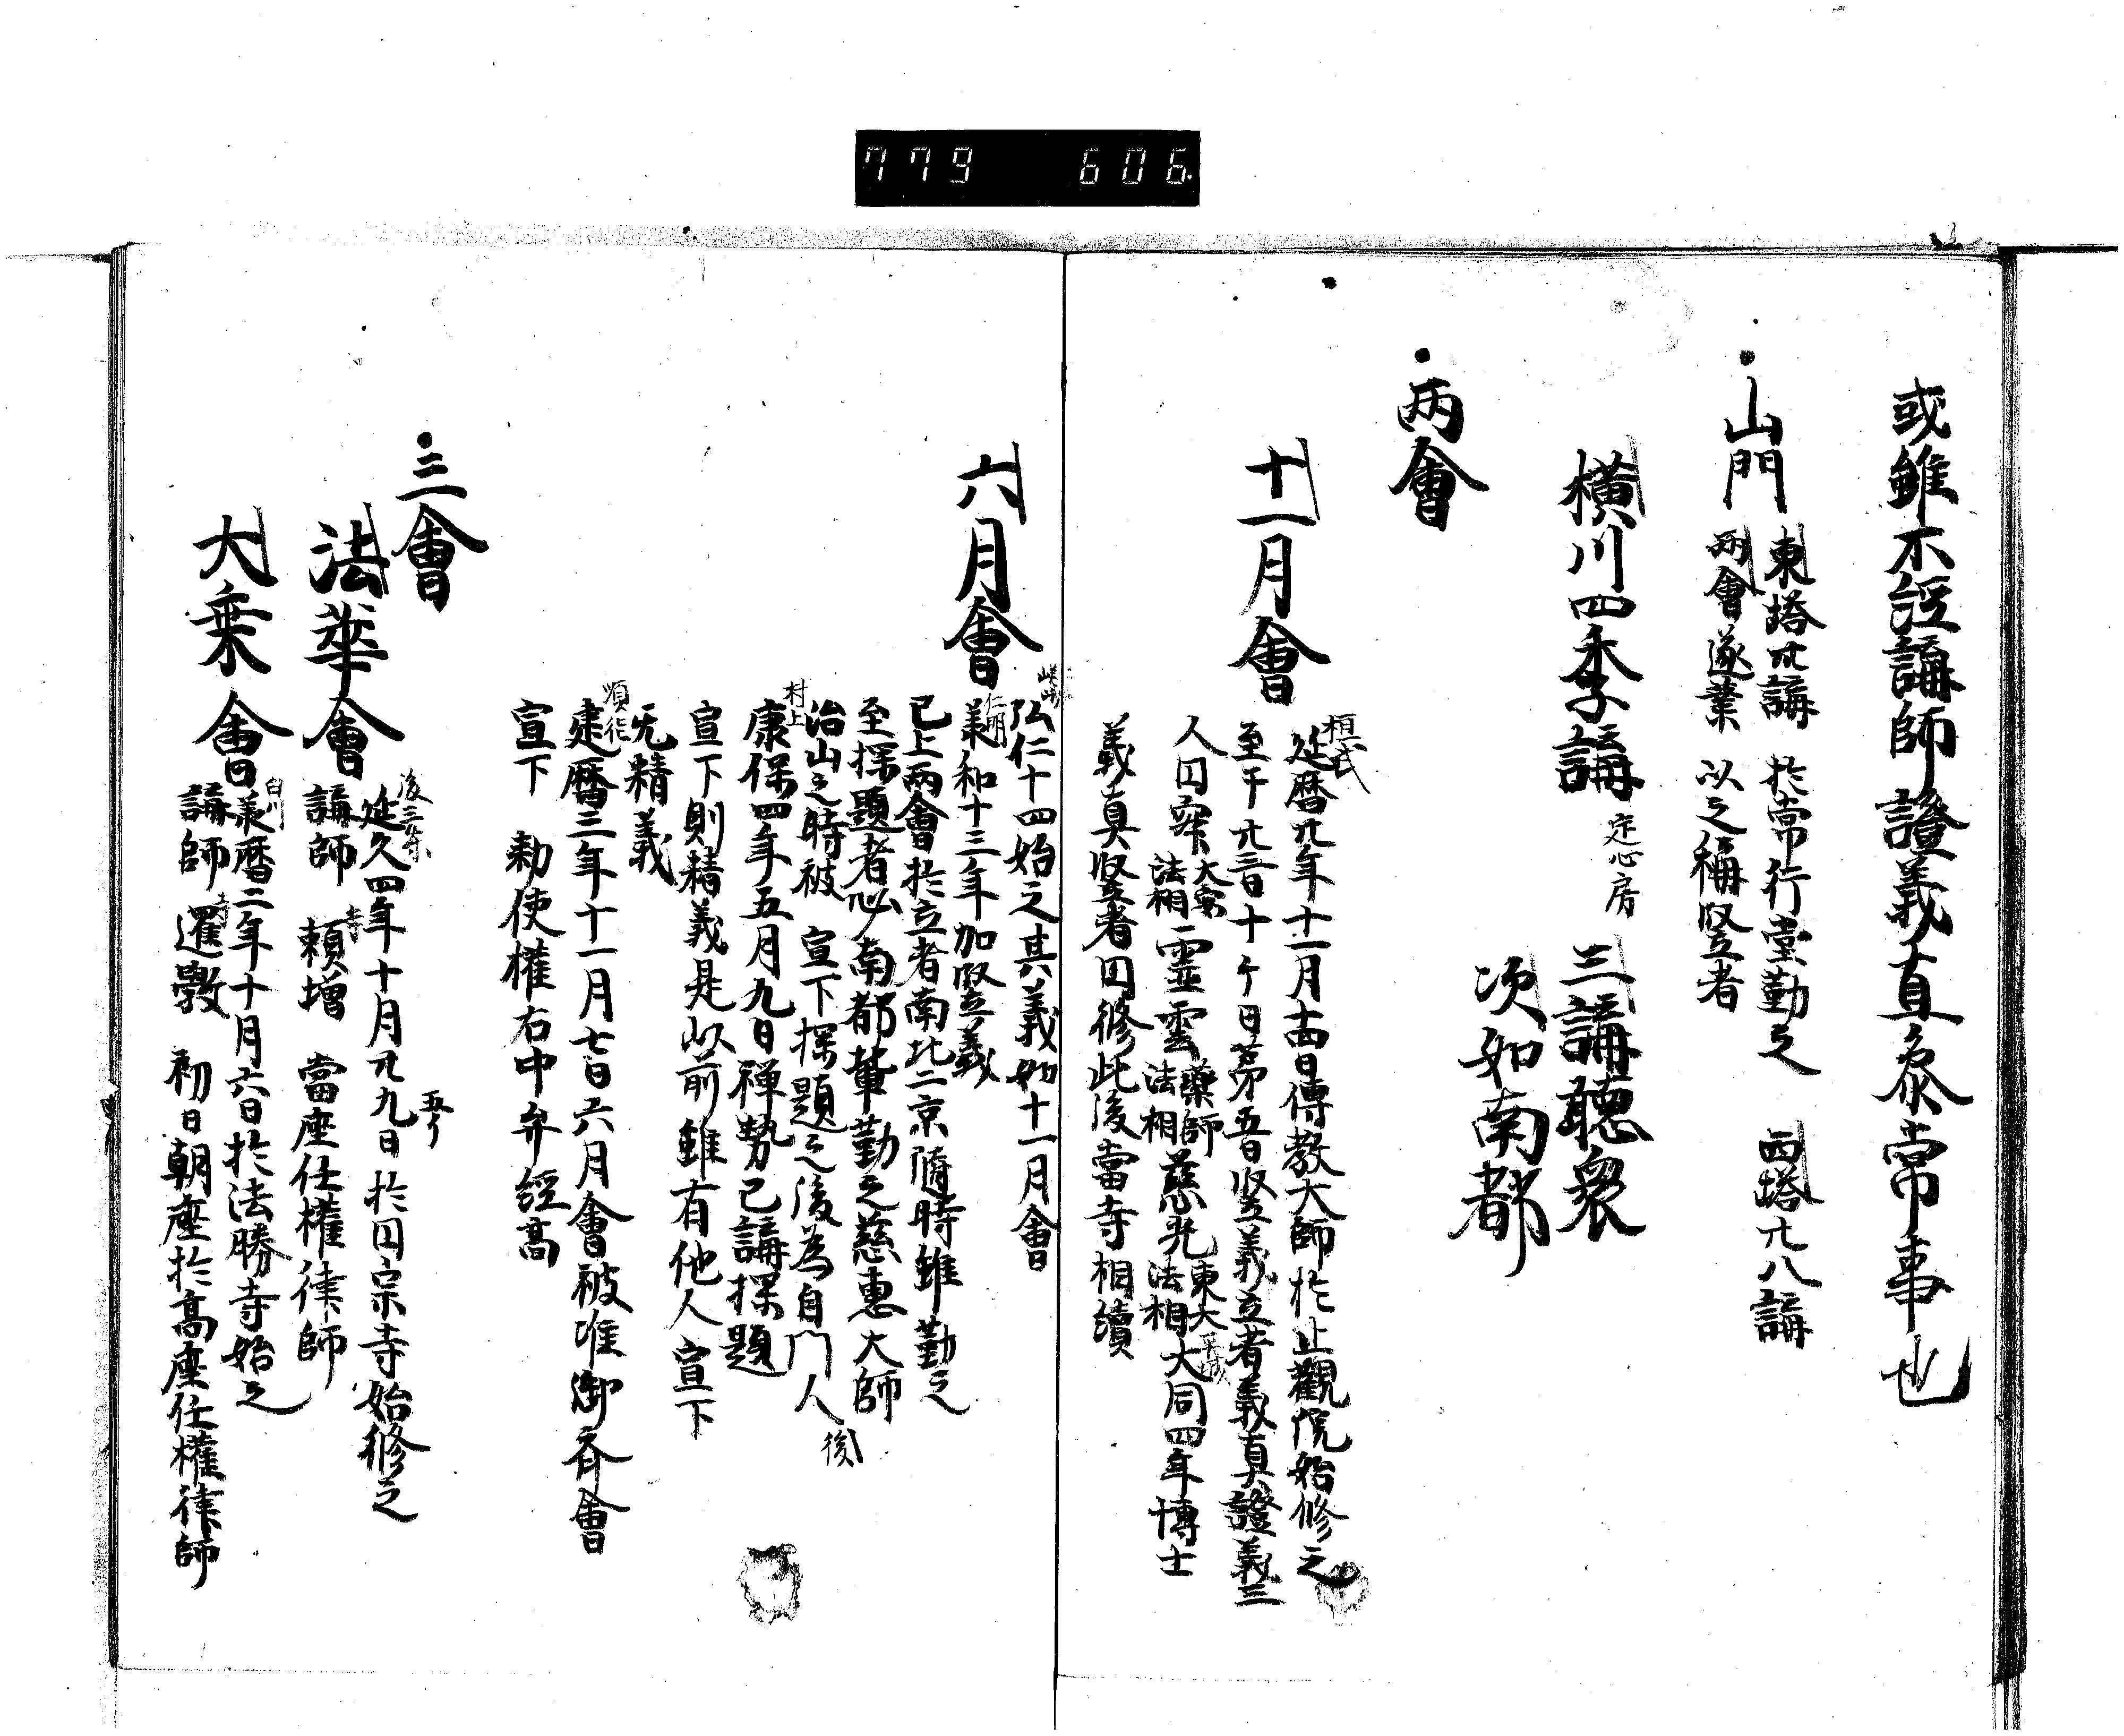 779 606
或雖不経講師證義直参常事也
山門
東塔卅講 於常行堂勤之 西塔廿八講
兩會遂業 以之稱竪者
横川四季講 定心房 三講聴衆
次如南都
兩會
十一月會
桓武
延暦廿年十一月十四日傳教大師於止觀院始修之
至于廿三日十ケ日第五日竪義立者義真證義三
人円宗大安法相霊雲藥師法相慈光東大法相平城大同四年博士
義真竪者円修此後當寺相續
六月會
嵯峨
弘仁十四始之其義如十一月會
仁明
羕和十三年加竪義
已上兩會於立者南北二京随時雖勤之
至探題者必南都輩勤之慈恵大師
治山之時被 宣下探題之後為自門人後
村上
康保四年五月九日禅勢已講探題
宣下則精義是以前雖有他人宣下
无精義
順德
建暦三年十一月七日六月會被准御斉會
宣下 勅使權右中弁経高
三會
法華會
後三条
延久四年十月廿九日於円宗寺始修之
講師 寺 頼増 當座任權律師
大乗會
白川
羕暦二年十月六日於法勝寺始之
講師 寺 暹斅 初日朝座於高座任權律師